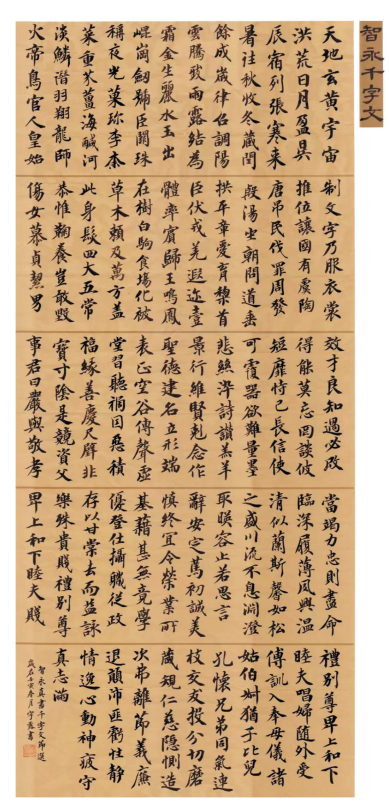 智永千字文
天地玄黃宇宙
洪荒日月盈昃
辰宿列張寒来
暑往秋收冬藏閏
餘成歲律召調陽
雲騰致雨露結為
霜金生麗水玉出
崐崗劒號巨闕珠
稱夜光菓珍李柰
菜重芥薑海鹹河
淡鱗潛羽翔龍師
火帝鳥官人皇始
制文字乃服衣裳
推位讓國有虞陶
唐弔民伐罪周發
殷湯坐朝問道垂
拱平章愛育黎首
臣伏戎羌遐迩壹
體率賓歸王鳴鳳
在樹白駒食場化被
草木賴及萬方盖
此身髮四大五常
恭惟鞠養豈敢毀
傷女慕貞絜男
效才良知過必改
得能莫忘罔談彼
短靡恃己長信使
可覆器欲難量墨
悲絲淬詩讃羔羊
景行維賢剋念作
聖德建名立形端
表正空谷傳聲虛
堂習聽禍因惡積
福緣善慶尺璧非
寶寸陰是競資父
事君曰嚴與敬孝
當竭力忠則盡命
臨深履薄夙興溫
清似蘭斯馨如松
之盛川流不息淵澄
取暎容止若思言
辭安定篤初誠美
慎終宜令榮業所
基藉甚無竟學
優登仕攝職從政
存以甘棠去而益詠
樂殊貴賤禮別尊
卑上和下睦夫賤
禮別尊卑上和下
睦夫唱婦隨外受
傅訓入奉母儀諸
姑伯叔猶子比兒
孔懷兄弟同氣連
枝交友投分切磨
箴規仁慈隱惻造
次弗離節義廉
退顛沛匪虧性靜
情逸心動神疲守
真志滿
智永真書千字文節選
歲在壬寅春月宇書